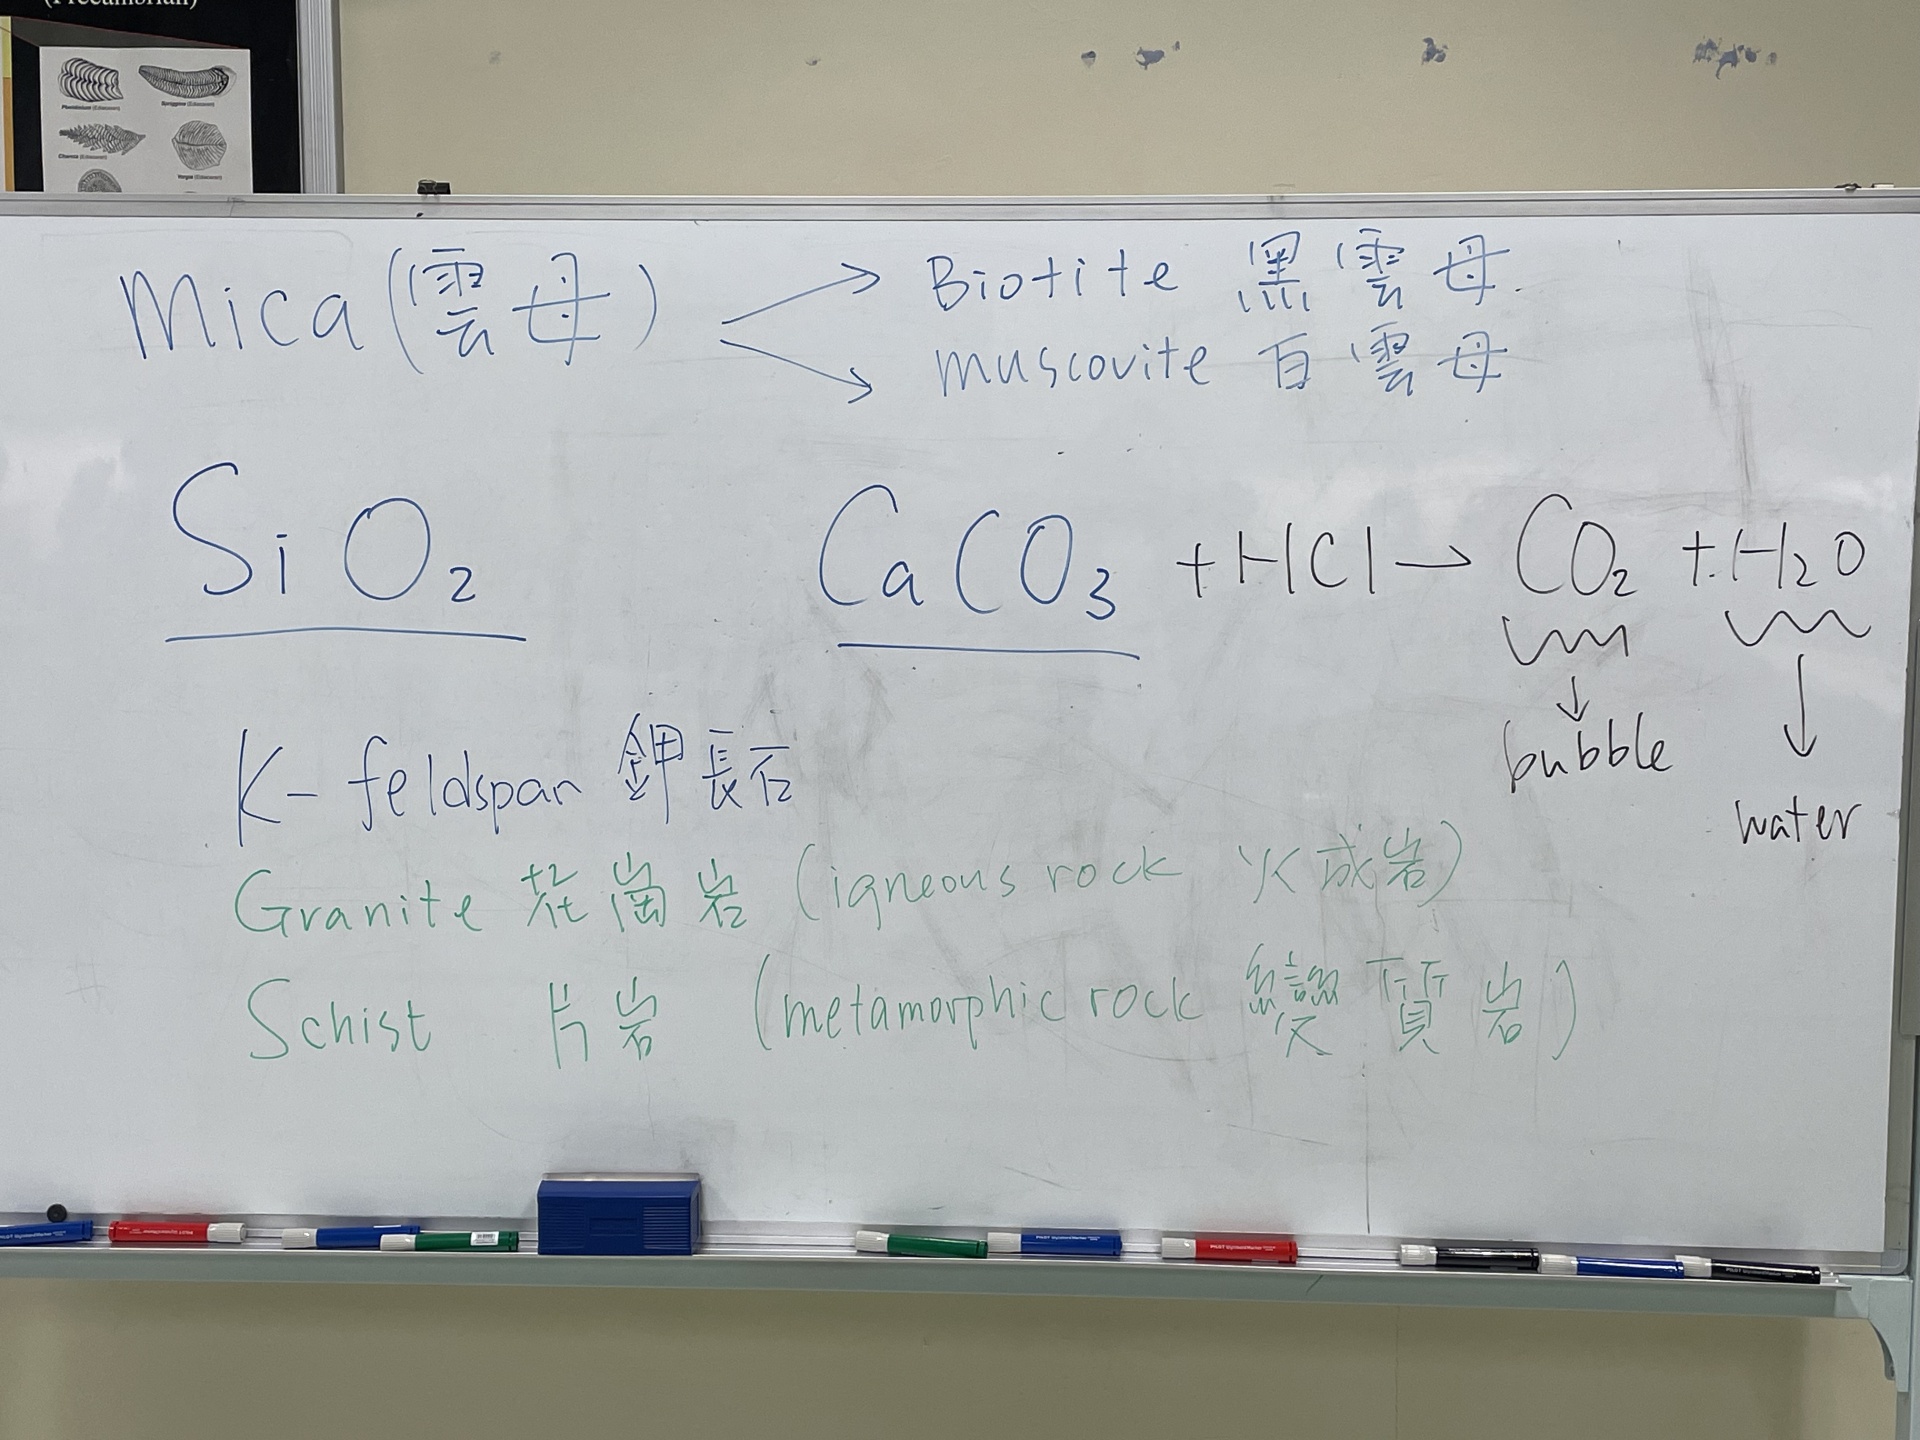 (Precambrian)
Charnia (Ediacaran)
Mica (雲母) → Biotite 黑雲母
→ muscovite 白雲母
SiO₂ CaCO₃ + HCl → CO₂ + H₂O
↓ bubble
↓ water
K-feldspar 鉀長石
Granite 花崗岩 (igneous rock 火成岩)
Schist 片岩 (metamorphic rock 變質岩)